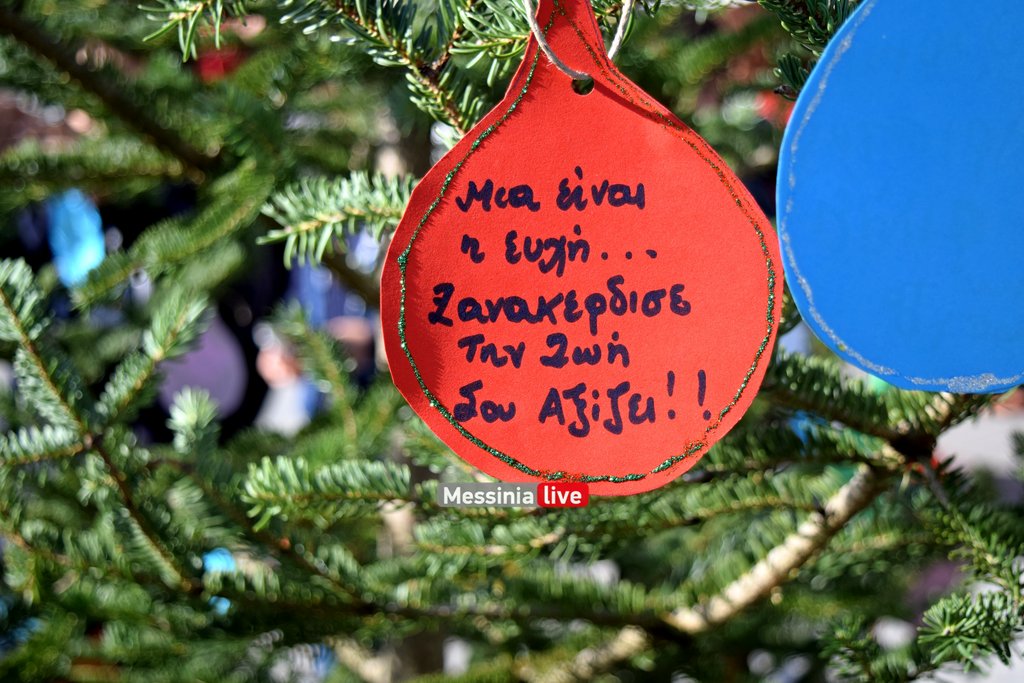 Μια είναι
η ευχή...
Ξανακερδισε
Την Ζωή
Σου Αξίζει!!
Messinia live